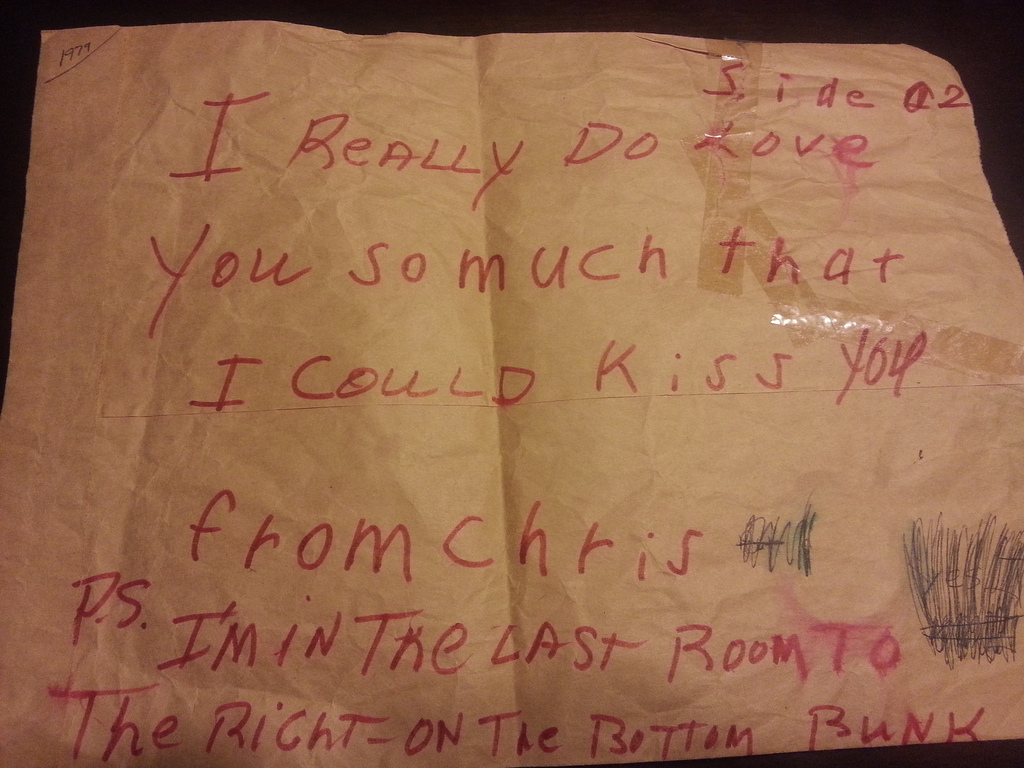 1979
Side a2
I ReALLY Do Love
You so much that
I COULD Kiss You
from Chris
P.S. I'M iN The LAST ROOM TO
The RiGHT-ON The BoTTom BUNK